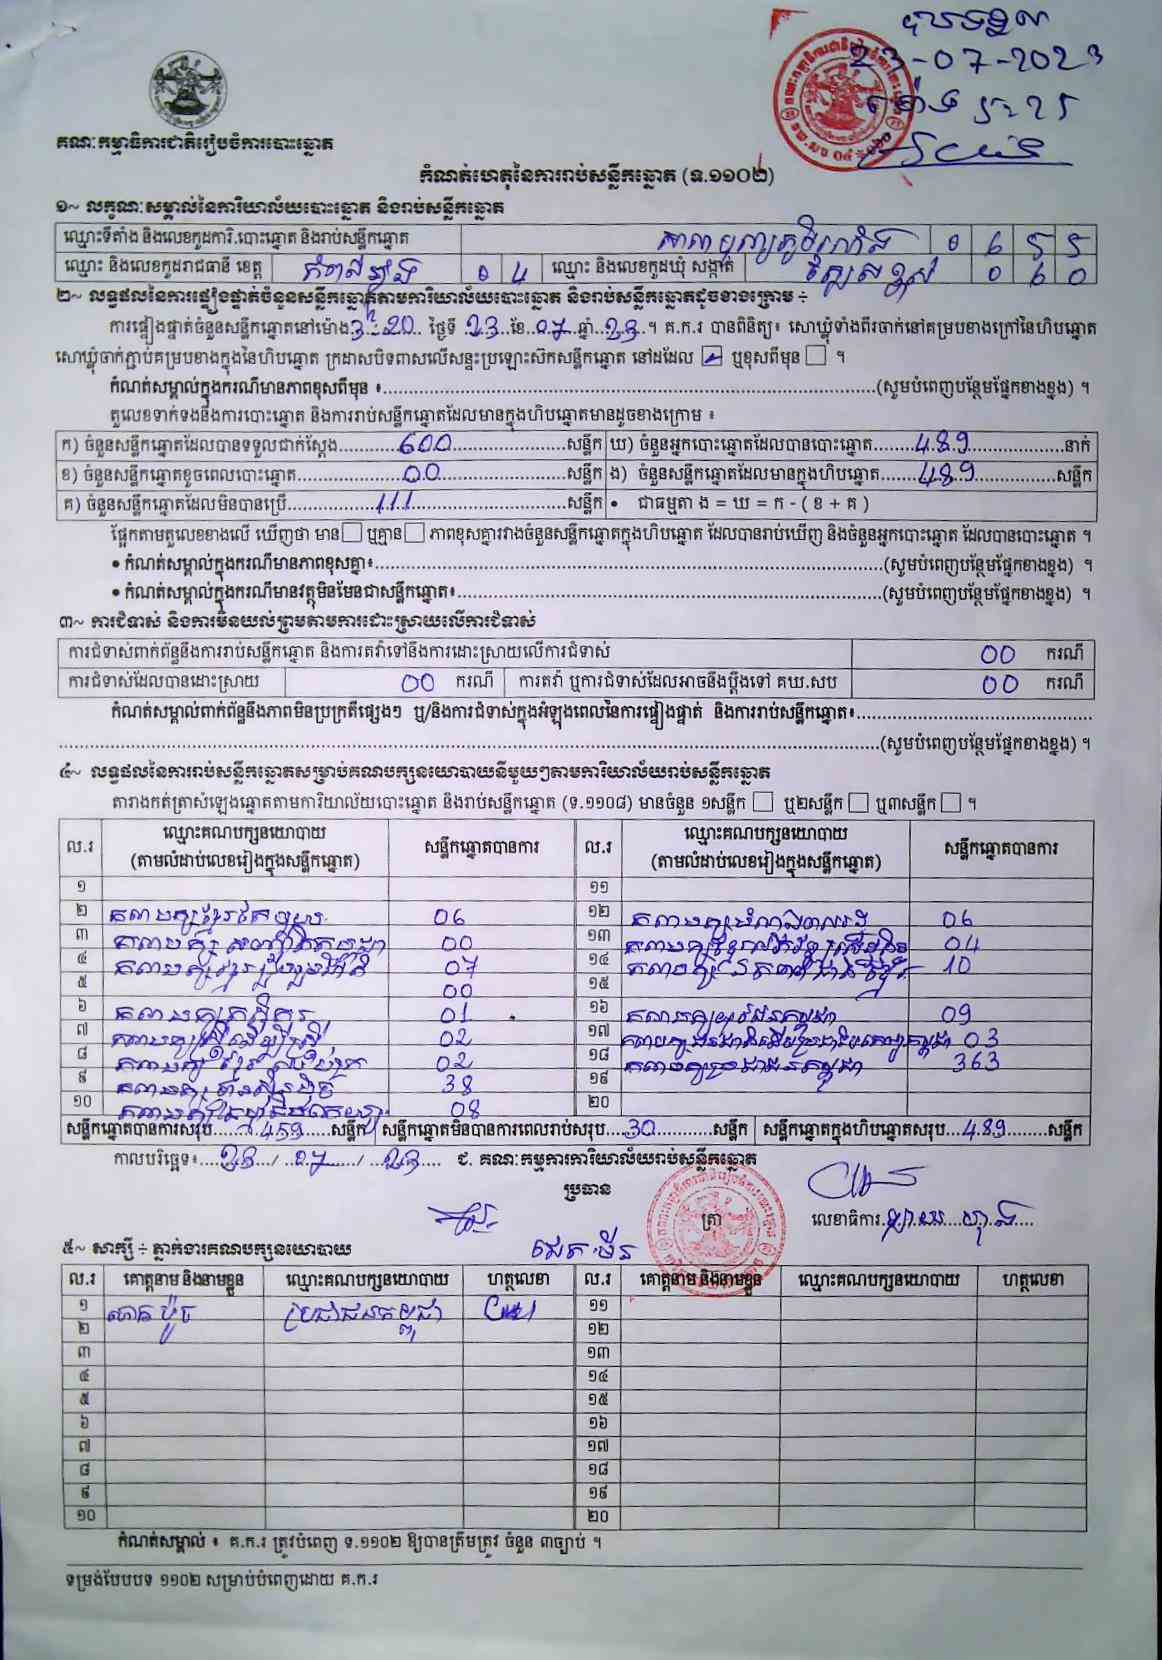 បានទទួល
23-07-2023
ម៉ោង
គណៈកម្មាធិការជាតិរៀបចំការបោះឆ្នោត
កំណត់ហេតុនៃការរាប់សន្លឹកឆ្នោត (ទ.១១០២)
១~ លក្ខណៈសម្គាល់នៃការិយាល័យបោះឆ្នោត និងរាប់សន្លឹកឆ្នោត
ឈ្មោះទីតាំង និងលេខកូដការិ.បោះឆ្នោត និងរាប់សន្លឹកឆ្នោត 0 6 5 5
ឈ្មោះ និងលេខកូដរាជធានី ខេត្ត កំពង់ឆ្នាំង 0 4 ឈ្មោះ និងលេខកូដឃុំ សង្កាត់ 0 6 0
២~ លទ្ធផលនៃការផ្ទៀងផ្ទាត់ចំនួនសន្លឹកឆ្នោតតាមការិយាល័យបោះឆ្នោត និងរាប់សន្លឹកឆ្នោតដូចខាងក្រោម ÷
ការផ្ទៀងផ្ទាត់ចំនួនសន្លឹកឆ្នោតនៅម៉ោង 3h 20 ថ្ងៃទី 23 ខែ 07 ឆ្នាំ 23 ។ គ.ក.រ បានពិនិត្យ៖ សោឃ្លុំទាំងពីរចាក់នៅគម្របខាងក្រៅនៃហិបឆ្នោត
សោឃ្លុំចាក់ភ្ជាប់គម្របខាងក្នុងនៃហិបឆ្នោត ក្រដាសបិទពាសលើសន្ទះប្រឡោះស៊កសន្លឹកឆ្នោត នៅដដែល ☑ ឬខុសពីមុន ☐ ។
កំណត់សម្គាល់ក្នុងករណីមានភាពខុសពីមុន ៖ (សូមបំពេញបន្ថែមផ្នែកខាងខ្នង) ។
តួលេខទាក់ទងនឹងការបោះឆ្នោត និងការរាប់សន្លឹកឆ្នោតដែលមានក្នុងហិបឆ្នោតមានដូចខាងក្រោម ៖
ក) ចំនួនសន្លឹកឆ្នោតដែលបានទទួលជាក់ស្តែង 600 សន្លឹក ឃ) ចំនួនអ្នកបោះឆ្នោតដែលបានបោះឆ្នោត 489 នាក់
ខ) ចំនួនសន្លឹកឆ្នោតខូចពេលបោះឆ្នោត 00 សន្លឹក ង) ចំនួនសន្លឹកឆ្នោតដែលមានក្នុងហិបឆ្នោត 489 សន្លឹក
គ) ចំនួនសន្លឹកឆ្នោតដែលមិនបានប្រើ 111 សន្លឹក • ជាធម្មតា ង = ឃ = ក - ( ខ + គ )
ផ្អែកតាមតួលេខខាងលើ ឃើញថា មាន ☐ ឬគ្មាន ☐ ភាពខុសគ្នារវាងចំនួនសន្លឹកឆ្នោតក្នុងហិបឆ្នោត ដែលបានរាប់ឃើញ និងចំនួនអ្នកបោះឆ្នោត ដែលបានបោះឆ្នោត ។
• កំណត់សម្គាល់ក្នុងករណីមានភាពខុសគ្នា៖ (សូមបំពេញបន្ថែមផ្នែកខាងខ្នង) ។
• កំណត់សម្គាល់ក្នុងករណីមានវត្ថុមិនមែនជាសន្លឹកឆ្នោត៖ (សូមបំពេញបន្ថែមផ្នែកខាងខ្នង) ។
៣~ ការជំទាស់ និងការមិនយល់ព្រមតាមការដោះស្រាយលើការជំទាស់
ការជំទាស់ពាក់ព័ន្ធនឹងការរាប់សន្លឹកឆ្នោត និងការតវ៉ាទៅនឹងការដោះស្រាយលើការជំទាស់ 00 ករណី
ការជំទាស់ដែលបានដោះស្រាយ 00 ករណី ការតវ៉ា ឬការជំទាស់ដែលអាចនឹងប្តឹងទៅ គឃ.សប 00 ករណី
កំណត់សម្គាល់ពាក់ព័ន្ធនឹងភាពមិនប្រក្រតីផ្សេងៗ ឬ/និងការជំទាស់ក្នុងអំឡុងពេលនៃការផ្ទៀងផ្ទាត់ និងការរាប់សន្លឹកឆ្នោត៖
(សូមបំពេញបន្ថែមផ្នែកខាងខ្នង) ។
៤~ លទ្ធផលនៃការរាប់សន្លឹកឆ្នោតសម្រាប់គណបក្សនយោបាយនីមួយៗតាមការិយាល័យរាប់សន្លឹកឆ្នោត
តារាងកត់ត្រាសំឡេងឆ្នោតតាមការិយាល័យបោះឆ្នោត និងរាប់សន្លឹកឆ្នោត (ទ.១១០៨) មានចំនួន ១សន្លឹក ☐ ឬ២សន្លឹក ☐ ឬ៣សន្លឹក ☐ ។
ល.រ ឈ្មោះគណបក្សនយោបាយ (តាមលំដាប់លេខរៀងក្នុងសន្លឹកឆ្នោត) សន្លឹកឆ្នោតបានការ ល.រ ឈ្មោះគណបក្សនយោបាយ (តាមលំដាប់លេខរៀងក្នុងសន្លឹកឆ្នោត) សន្លឹកឆ្នោតបានការ
១ ១១
២ គណបក្ស 06 ១២ គណបក្ស 06
៣ គណបក្ស 00 ១៣ គណបក្ស 04
៤ គណបក្ស 07 ១៤ គណបក្ស 10
៥ 00 ១៥
៦ គណបក្ស 01 ១៦ គណបក្ស 09
៧ គណបក្ស 02 ១៧ គណបក្ស 03
៨ គណបក្ស 02 ១៨ គណបក្សប្រជាជនកម្ពុជា 363
៩ គណបក្ស 38 ១៩
១០ គណបក្ស 08 ២០
សន្លឹកឆ្នោតបានការសរុប 459 សន្លឹក សន្លឹកឆ្នោតមិនបានការពេលរាប់សរុប 30 សន្លឹក សន្លឹកឆ្នោតក្នុងហិបឆ្នោតសរុប 489 សន្លឹក
កាលបរិច្ឆេទ៖ 23 / 07 / 23 ជ. គណៈកម្មការការិយាល័យរាប់សន្លឹកឆ្នោត
ប្រធាន
ត្រា លេខាធិការ
៥~ សាក្សី ÷ ភ្នាក់ងារគណបក្សនយោបាយ
ល.រ គោត្តនាម និងនាមខ្លួន ឈ្មោះគណបក្សនយោបាយ ហត្ថលេខា ល.រ គោត្តនាម និងនាមខ្លួន ឈ្មោះគណបក្សនយោបាយ ហត្ថលេខា
១ ប្រជាជនកម្ពុជា ១១
២ ១២
៣ ១៣
៤ ១៤
៥ ១៥
៦ ១៦
៧ ១៧
៨ ១៨
៩ ១៩
១០ ២០
កំណត់សម្គាល់ ៖ គ.ក.រ ត្រូវបំពេញ ទ.១១០២ ឱ្យបានត្រឹមត្រូវ ចំនួន ៣ច្បាប់ ។
ទម្រង់បែបបទ ១១០២ សម្រាប់បំពេញដោយ គ.ក.រ